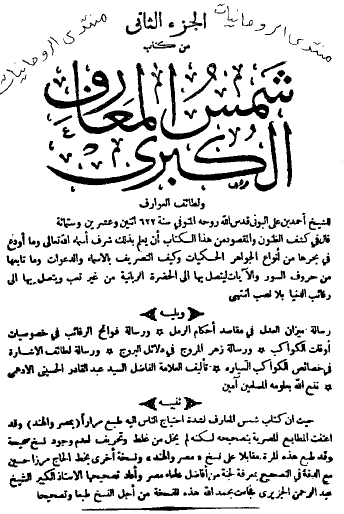 منتدى الروحانيات
منتدى الروحانيات
الجزء الثانى
من كتاب
شمس المعارف
الكبرى
ولطائف العوارف
للشيخ أحمد بن على البونى قدس الله روحه المتوفى سنة ٦٢٢ اثنين وعشرين وستمائة
قال فى كشف الظنون والمقصود من هذا الكتاب أن يعلم بذلك شرف أسماء الله تعالى وما أودع
فى بحرها من أنواع الجواهر الحكميات وكيف التصريف بالأسماء والدعوات وما تابعها
من حروف السور والآيات ليتصل بها الى الحضرة الربانية من غير تعب ويتصل بها الى
رغائب الدنيا بلا نصب انتهى
ويليه
رسالة ميزان العدل فى مقاصد أحكام الرمل * ورسالة فواتح الرغائب فى خصوصيات
أوقات الكواكب * ورسالة زهر المروج فى دلائل البروج * ورسالة لطائف الاشارة
فى خصائص الكواكب السياره * تأليف العلامة الفاضل السيد عبد القادر الحسينى الادهمى
* نفع الله بعلومه المسلمين آمين
تنبيه
حيث ان كتاب شمس المعارف لشدة احتياج الناس اليه طبع مراراً (بمصر والهند) وقد
اعتنت المطابع المصرية بتصحيحه لكنه لم يخل من غلط وتحريف لعدم وجود نسخ صحيحة
وقد طبع هذه المرة مقابلا على نسخ « مصر والهند » ونسخة أخرى بخط الحاج مرزا حسين
مع الدقة فى التصحيح بمعرفة لجنة من أفاضل علماء مصر وأعاد تصحيحها الأستاذ الكبير الشيخ
عبد الرحمن الجزيرى فجاءت بحمد الله هذه النسخة من أجل النسخ طبعا وتصحيحا